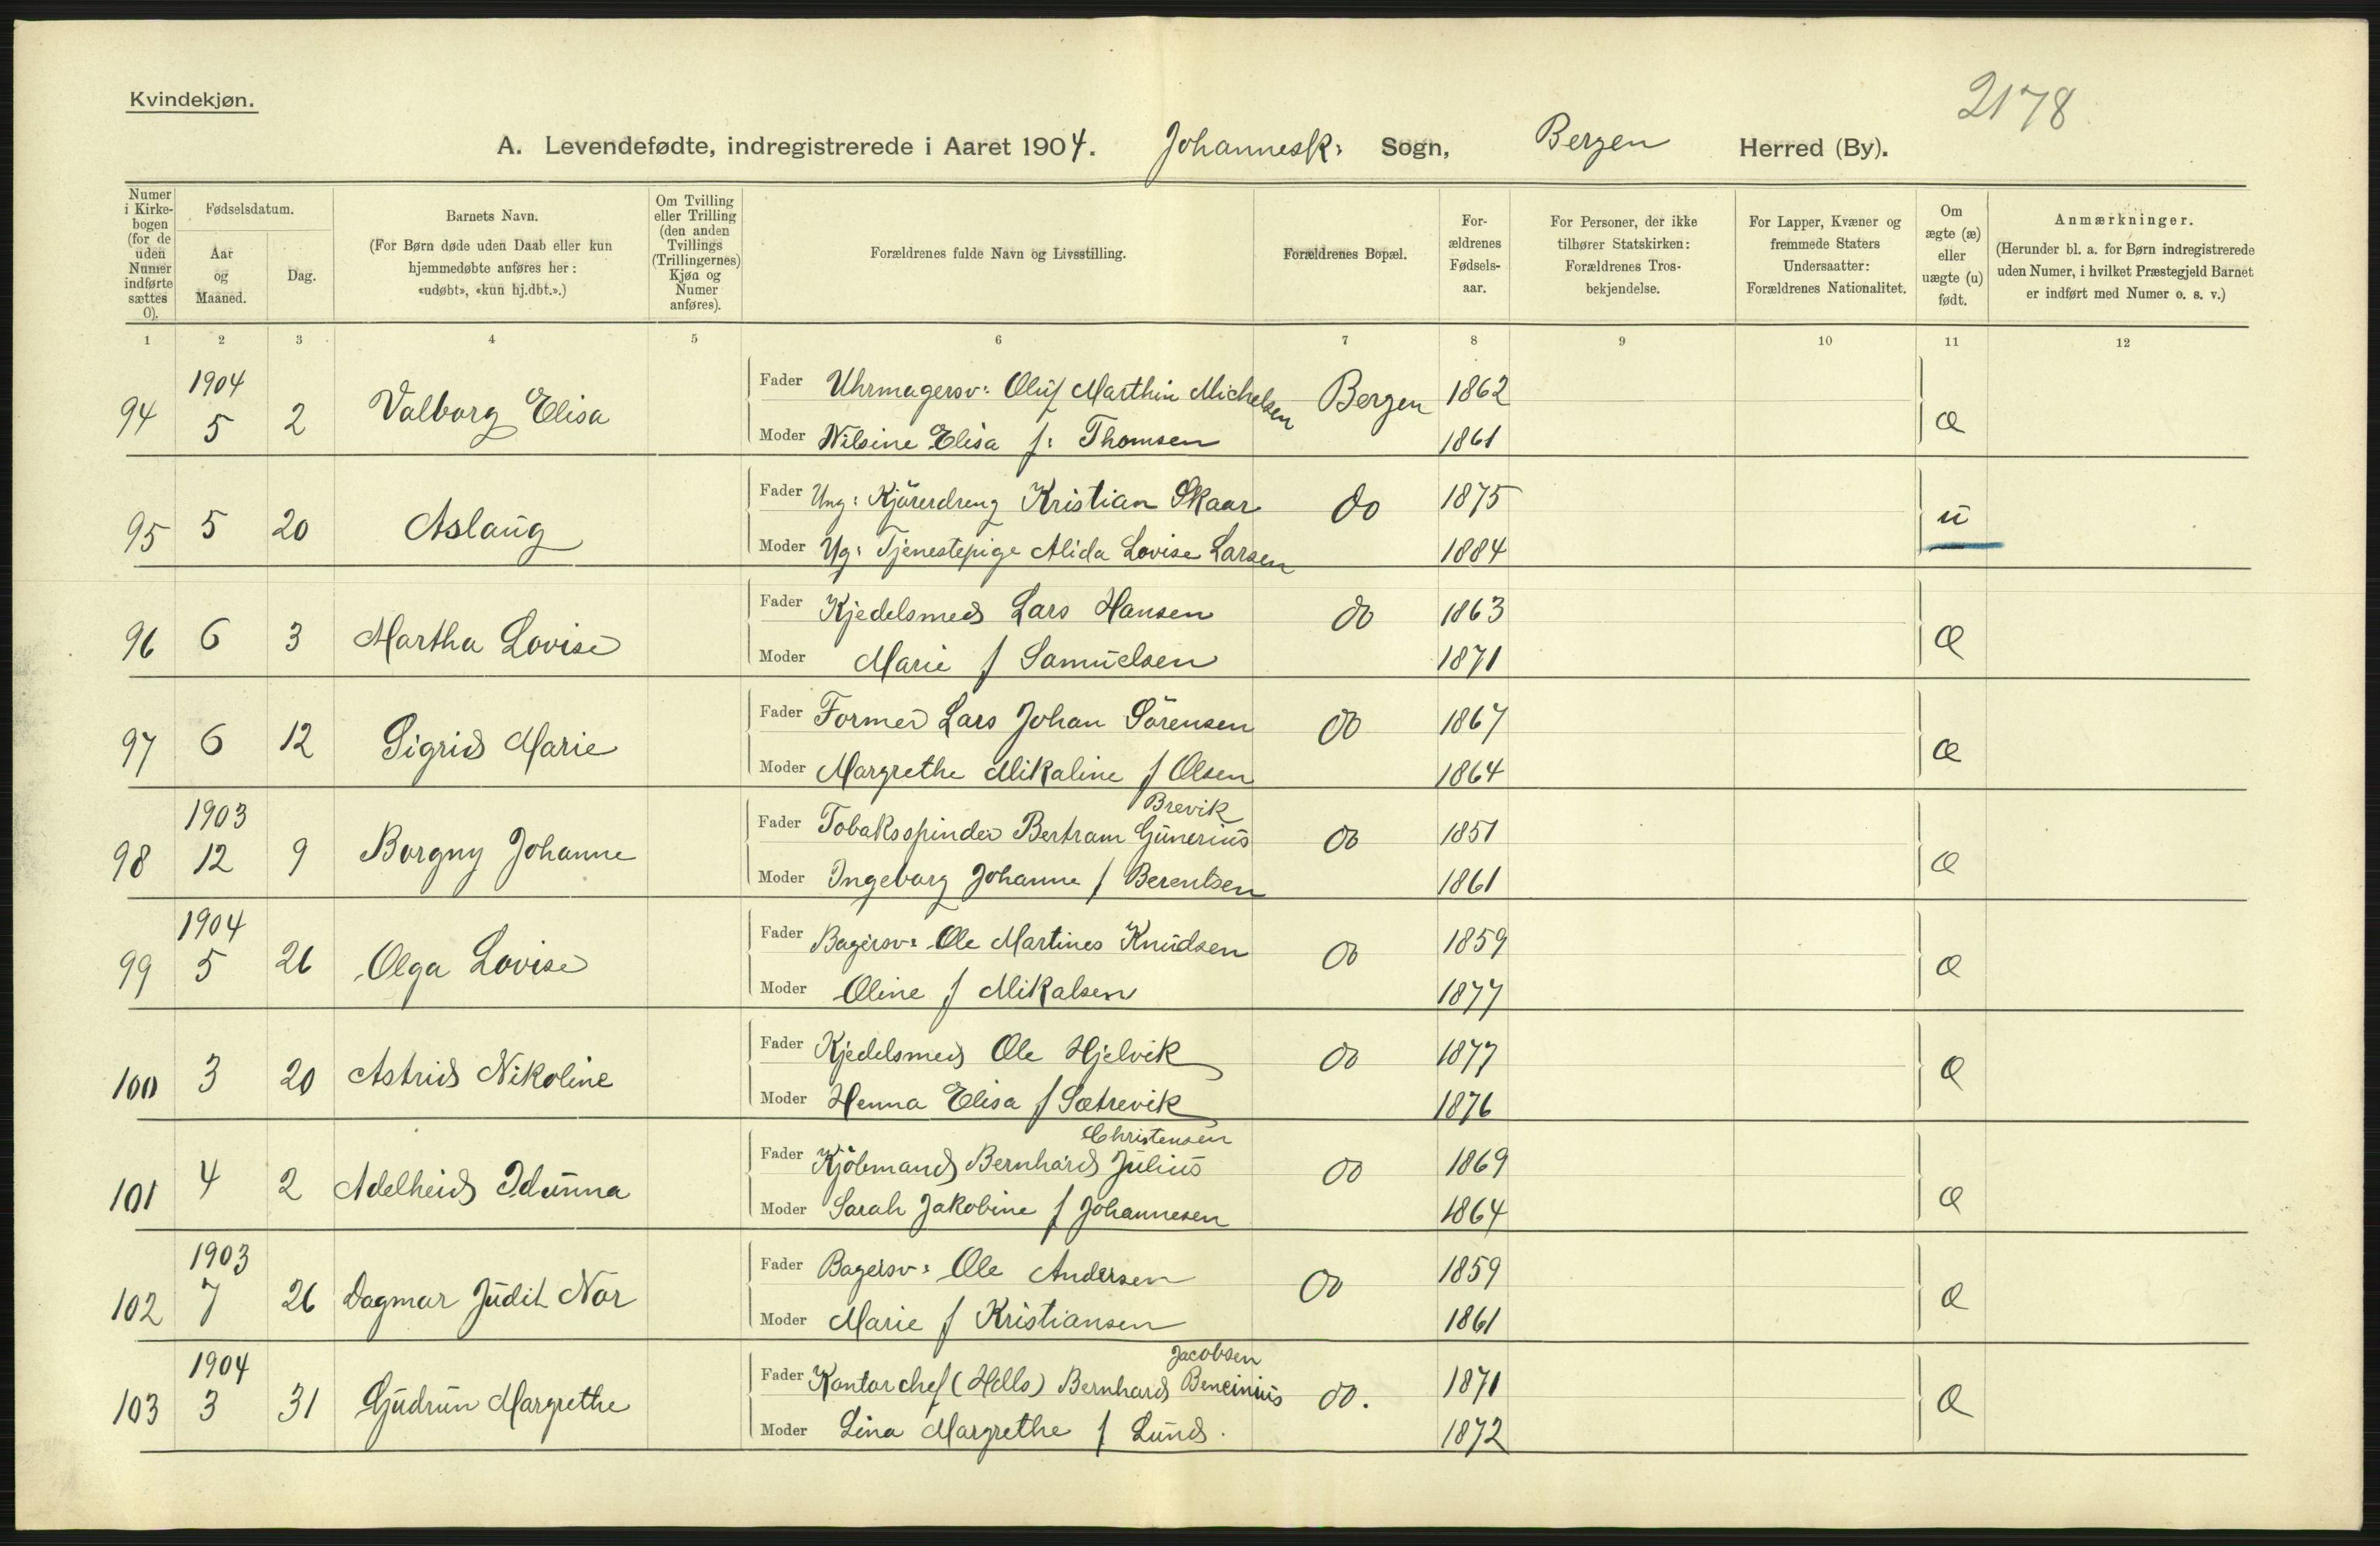 Kvindekjøn.
2178
A. Levendefødte, indregistrerede i Aaret 1904. Johannesk: Sogn, Bergen Herred (By).
Numer i Kirkebogen (for de uden Numer indførte sættes 0).
Fødselsdatum.
Aar og Maaned.
Dag.
Barnets Navn.
(For Børn døde uden Daab eller kun hjemmedøbte anføres her: «udøbt», «kun hj.dbt.».)
Om Tvilling eller Trilling (den anden Tvillings (Trillingernes) Kjøn og Numer anføres).
Forældrenes fulde Navn og Livsstilling.
Forældrenes Bopæl.
Forældrenes Fødselsaar.
For Personer, der ikke tilhører Statskirken: Forældrenes Trosbekjendelse.
For Lapper, Kvæner og fremmede Staters Undersaatter: Forældrenes Nationalitet.
Om ægte (æ) eller uægte (u) født.
Anmærkninger.
(Herunder bl. a. for Børn indregistrerede uden Numer, i hvilket Præstegjeld Barnet er indført med Numer o. s. v.)
1 2 3 4 5 6 7 8 9 10 11 12
1904
94 5 2 Valborg Elisa Fader Uhrmagersv: Oluf Marthin Michelsen Bergen 1862 æ
Moder Nilsine Elisa f: Thomsen 1861
95 5 20 Aslaug Fader Ung: Kjørerdreng Kristian Skaar do 1875 u
Moder Ug: Tjenestepige Alida Lovise Larsen 1884
96 6 3 Martha Lovise Fader Kjedelsmed Lars Hansen do 1863 æ
Moder Marie f Samuelsen 1871
97 6 12 Sigrid Marie Fader Former Lars Johan Sörensen do 1867 æ
Moder Margrethe Mikaline f Olsen 1864
1903 Brevik
98 12 9 Borgny Johanne Fader Tobaksspinder Bertram Gunerius do 1851 æ
Moder Ingeborg Johanne f Berentsen 1861
1904
99 5 26 Olga Lovise Fader Bagersv: Ole Martines Knudsen do 1859 æ
Moder Oline f Mikalsen 1877
100 3 20 Astrid Nikoline Fader Kjedelsmed Ole Hjelvik do 1877 æ
Moder Henna Elisa f Sætrevik 1876
Christensen
101 4 2 Adelheid Idunna Fader Kjöbmand Bernhard Julius do 1869 æ
Moder Sarah Jakobine f Johannesen 1864
1903
102 7 26 Dagmar Judit Nor Fader Bagersv: Ole Andersen do 1859 æ
Moder Marie f Kristiansen 1861
1904 Jacobsen
103 3 31 Gudrun Margrethe Fader Kontorchef Bernhard do. 1871 æ
Moder Lina Margrethe f Lund. 1872